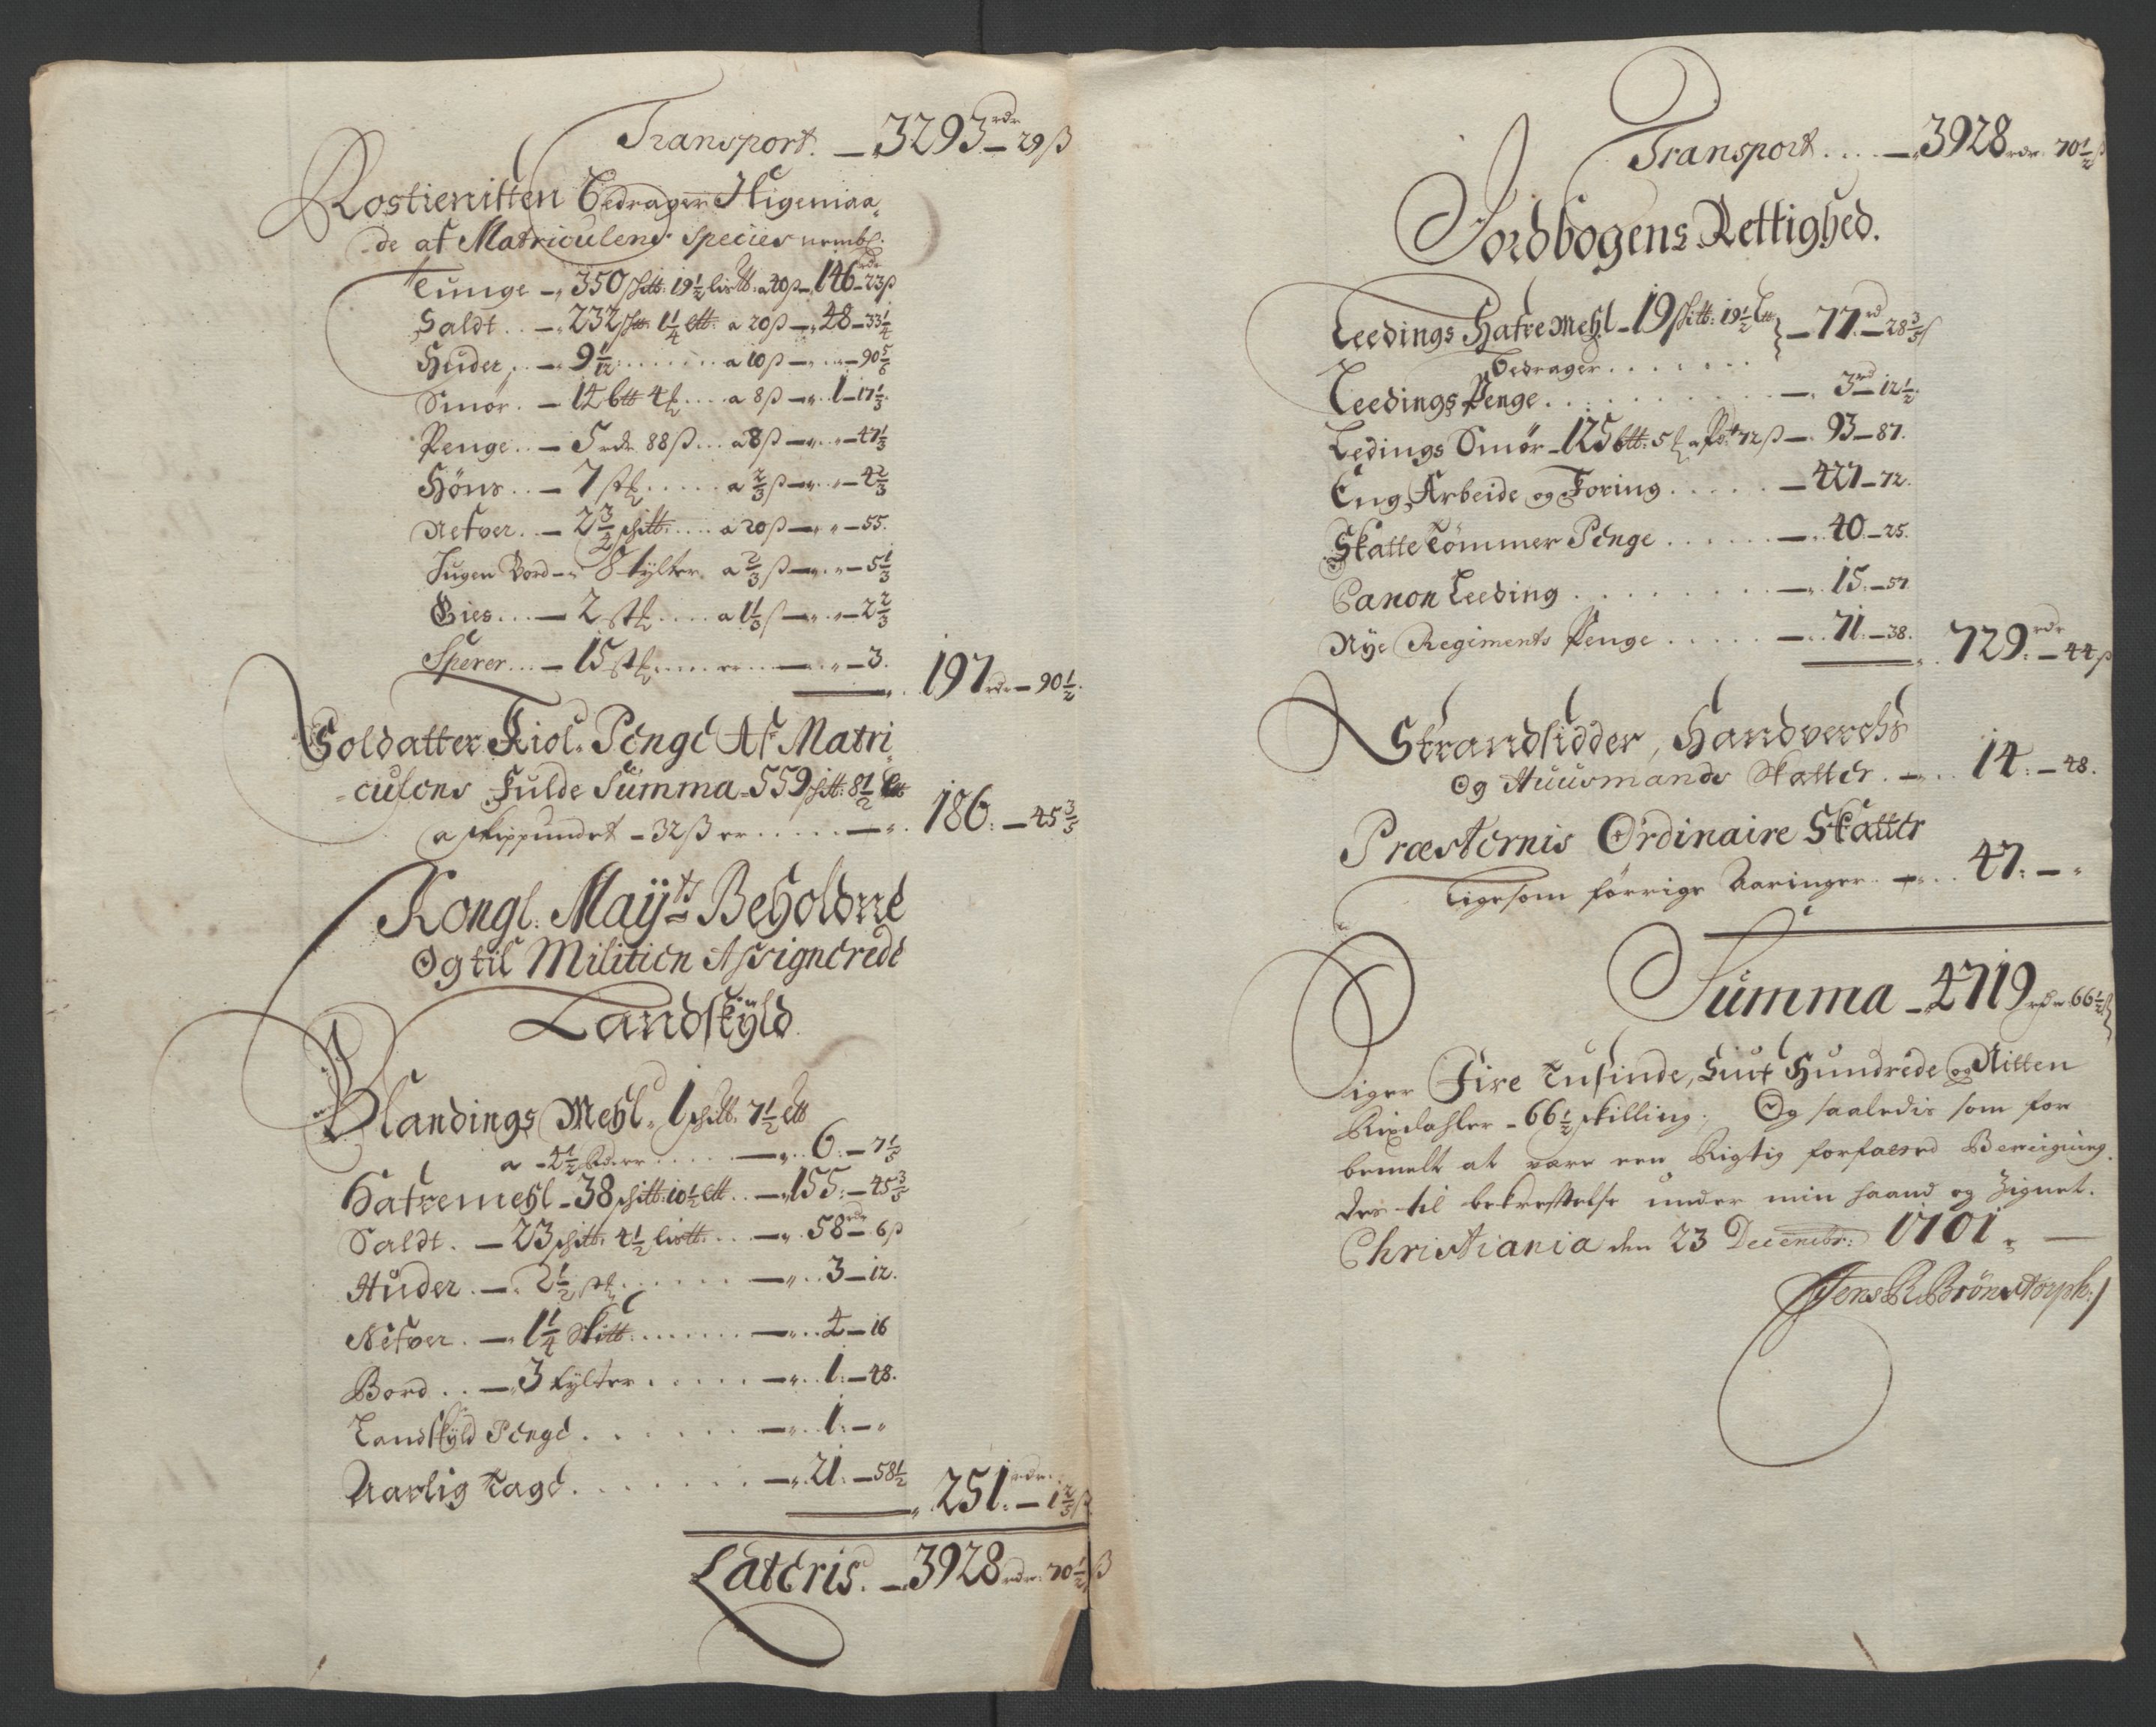 Transport. — 3293 rdr — 29 ß
Rostienisten bedrager Ligemaa-
de af Matriculens Species nembl:
Tunge — 350 sk℔: 19½ lis℔: a 40 ß — 146 rdr — 23 ß
Saldt .. — 232 sk℔: 1¼ l℔: a 20 ß — 48 — 33¼
Huder, .. — 9 1/12 ...... a 10 ß — 90 5/6
Smør. — 14 b℔ 4 .... a 8 ß — 1 — 17⅓
Penge .. — 5 rdr. 88 ß ... a 8 ß — 47⅓
Höns .. — 7 st ..... a ⅔ ß — 4⅔
Nefver .. — 2¾ sk℔: .... a 20 ß — 55.
Sugen Bord — 8 tylter a ⅔ ß — 5⅓
Gies ... — 2 st .... a 1⅓ ß — 2⅔
Sperer ... — 15 st .... er — 3.
197 rdr — 90½.
Soldatter Kiol-Penge Af Matri-
culens Fulde Summa - 559 sk℔: 8½ l℔
a skippundet - 32 ß er ..... — 186: — 45⅗
Kongl. Mayts Beholdne
Og til Militien Assignerede
Landskÿld
Blandings Mehl - 1 sk℔: 7½ l℔
a - 4½ rdr ..... — 6: — 7⅕
Hafremehl - 38 sk℔: 10½ l℔ .. — 155: — 45⅗
Saldt. — 23 sk℔: 4½ lis℔: ... — 58 rdr — 6 ß
Huder. — 2½ st ...... — 3 — 12.
Nefver. — 1¼ sk℔: ....... — 4 — 16
Bord .. — 3 tylter ..... — 1: — 48.
Landskÿld Penge ....... — 1: — "
Aarlig Tage ........ — 21: — 58½
251 rdr: — 1⅖ ß
Lateris. — 3928 rdr: 70½ ß
Transport .... — 3928 rdr. 70½ ß
Jordbogens Rettighed.
Leedings Hafre Mehl - 19 sk℔: 19½ l℔
bedrager ...... — 77 rd — 28⅗ ß
Leedings Penge .......... — 3 rd — 12½.
Ledings Smør - 125 b℔: 5 a Pd: 72 ß — 93 — 87.
Eng Arbeide og Foring ..... — 427 — 72.
Skatte Tömmer Penge ...... — 40 — 25.
Canon Leeding ........ — 15: — 57
Nye Regiments Penge ..... — 71 — 38.
729: rdr — 44 ß
Strandsidder, Handverchs
Og Huusmands Skatter. — 14: — 48.
Præsternis Ordinaire Skatter
ligesom förrige Aaringer. — 47: — "
Summa — 4719 rdr 66½ ß
siger Fire Tusinde, Siuf Hundrede og Nitten
Rixdahler - 66½ skilling; Og saaledis som for
bemelt at vare een Rigtig forfatted Beregning.
Des til bekreftelse under min haand og Zignet.
Christiania den 23 Decembr: 1701. —
Jens R Brönstorph